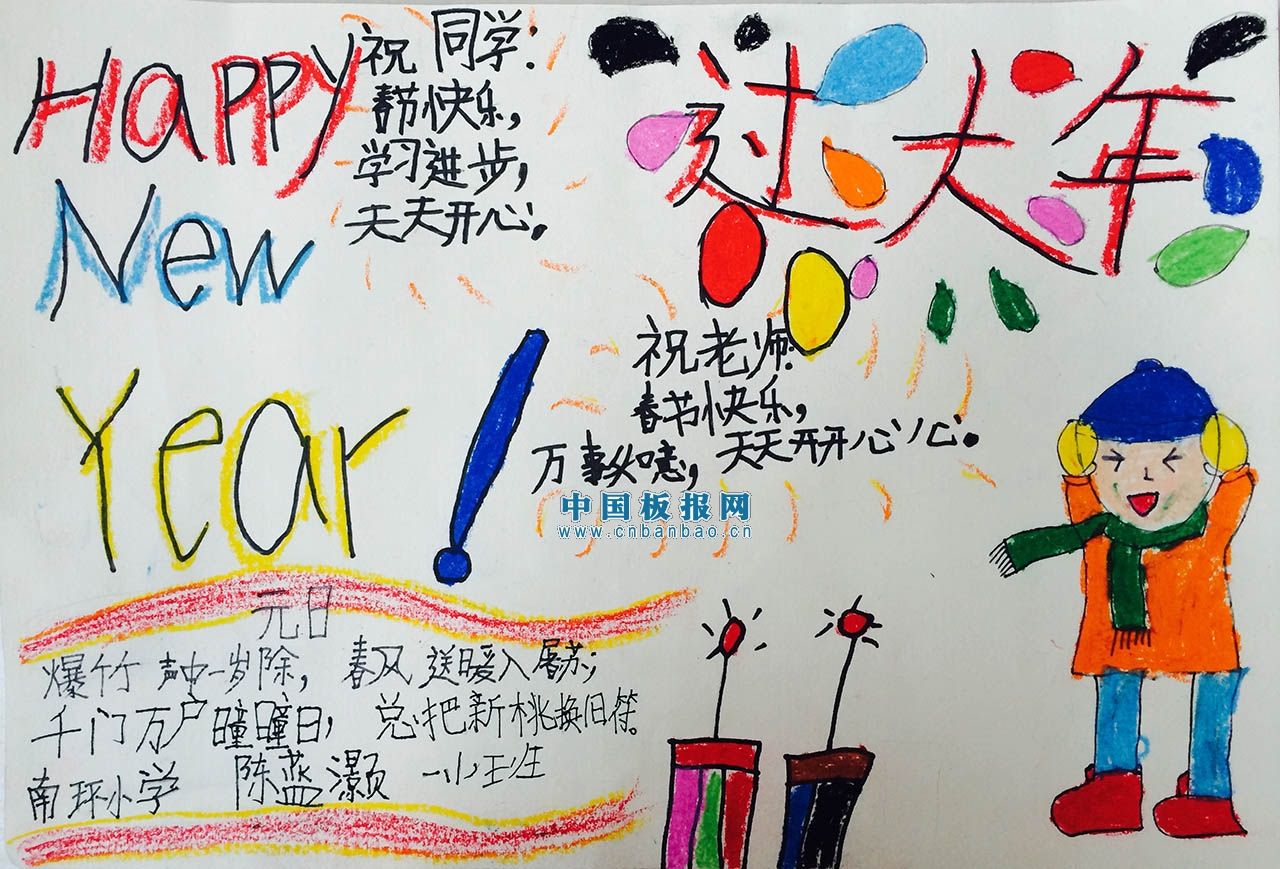 Happy
New
Year!
祝同学:
春节快乐,
学习进步,
天天开心。
过大年
祝老师:
春节快乐,
万事如意, 天天开开心心。
中国板报网
www.cnbanbao.cn
元日
爆竹声中一岁除, 春风送暖入屠苏;
千门万户曈曈日, 总把新桃换旧符。
南环小学 陈蓝灏